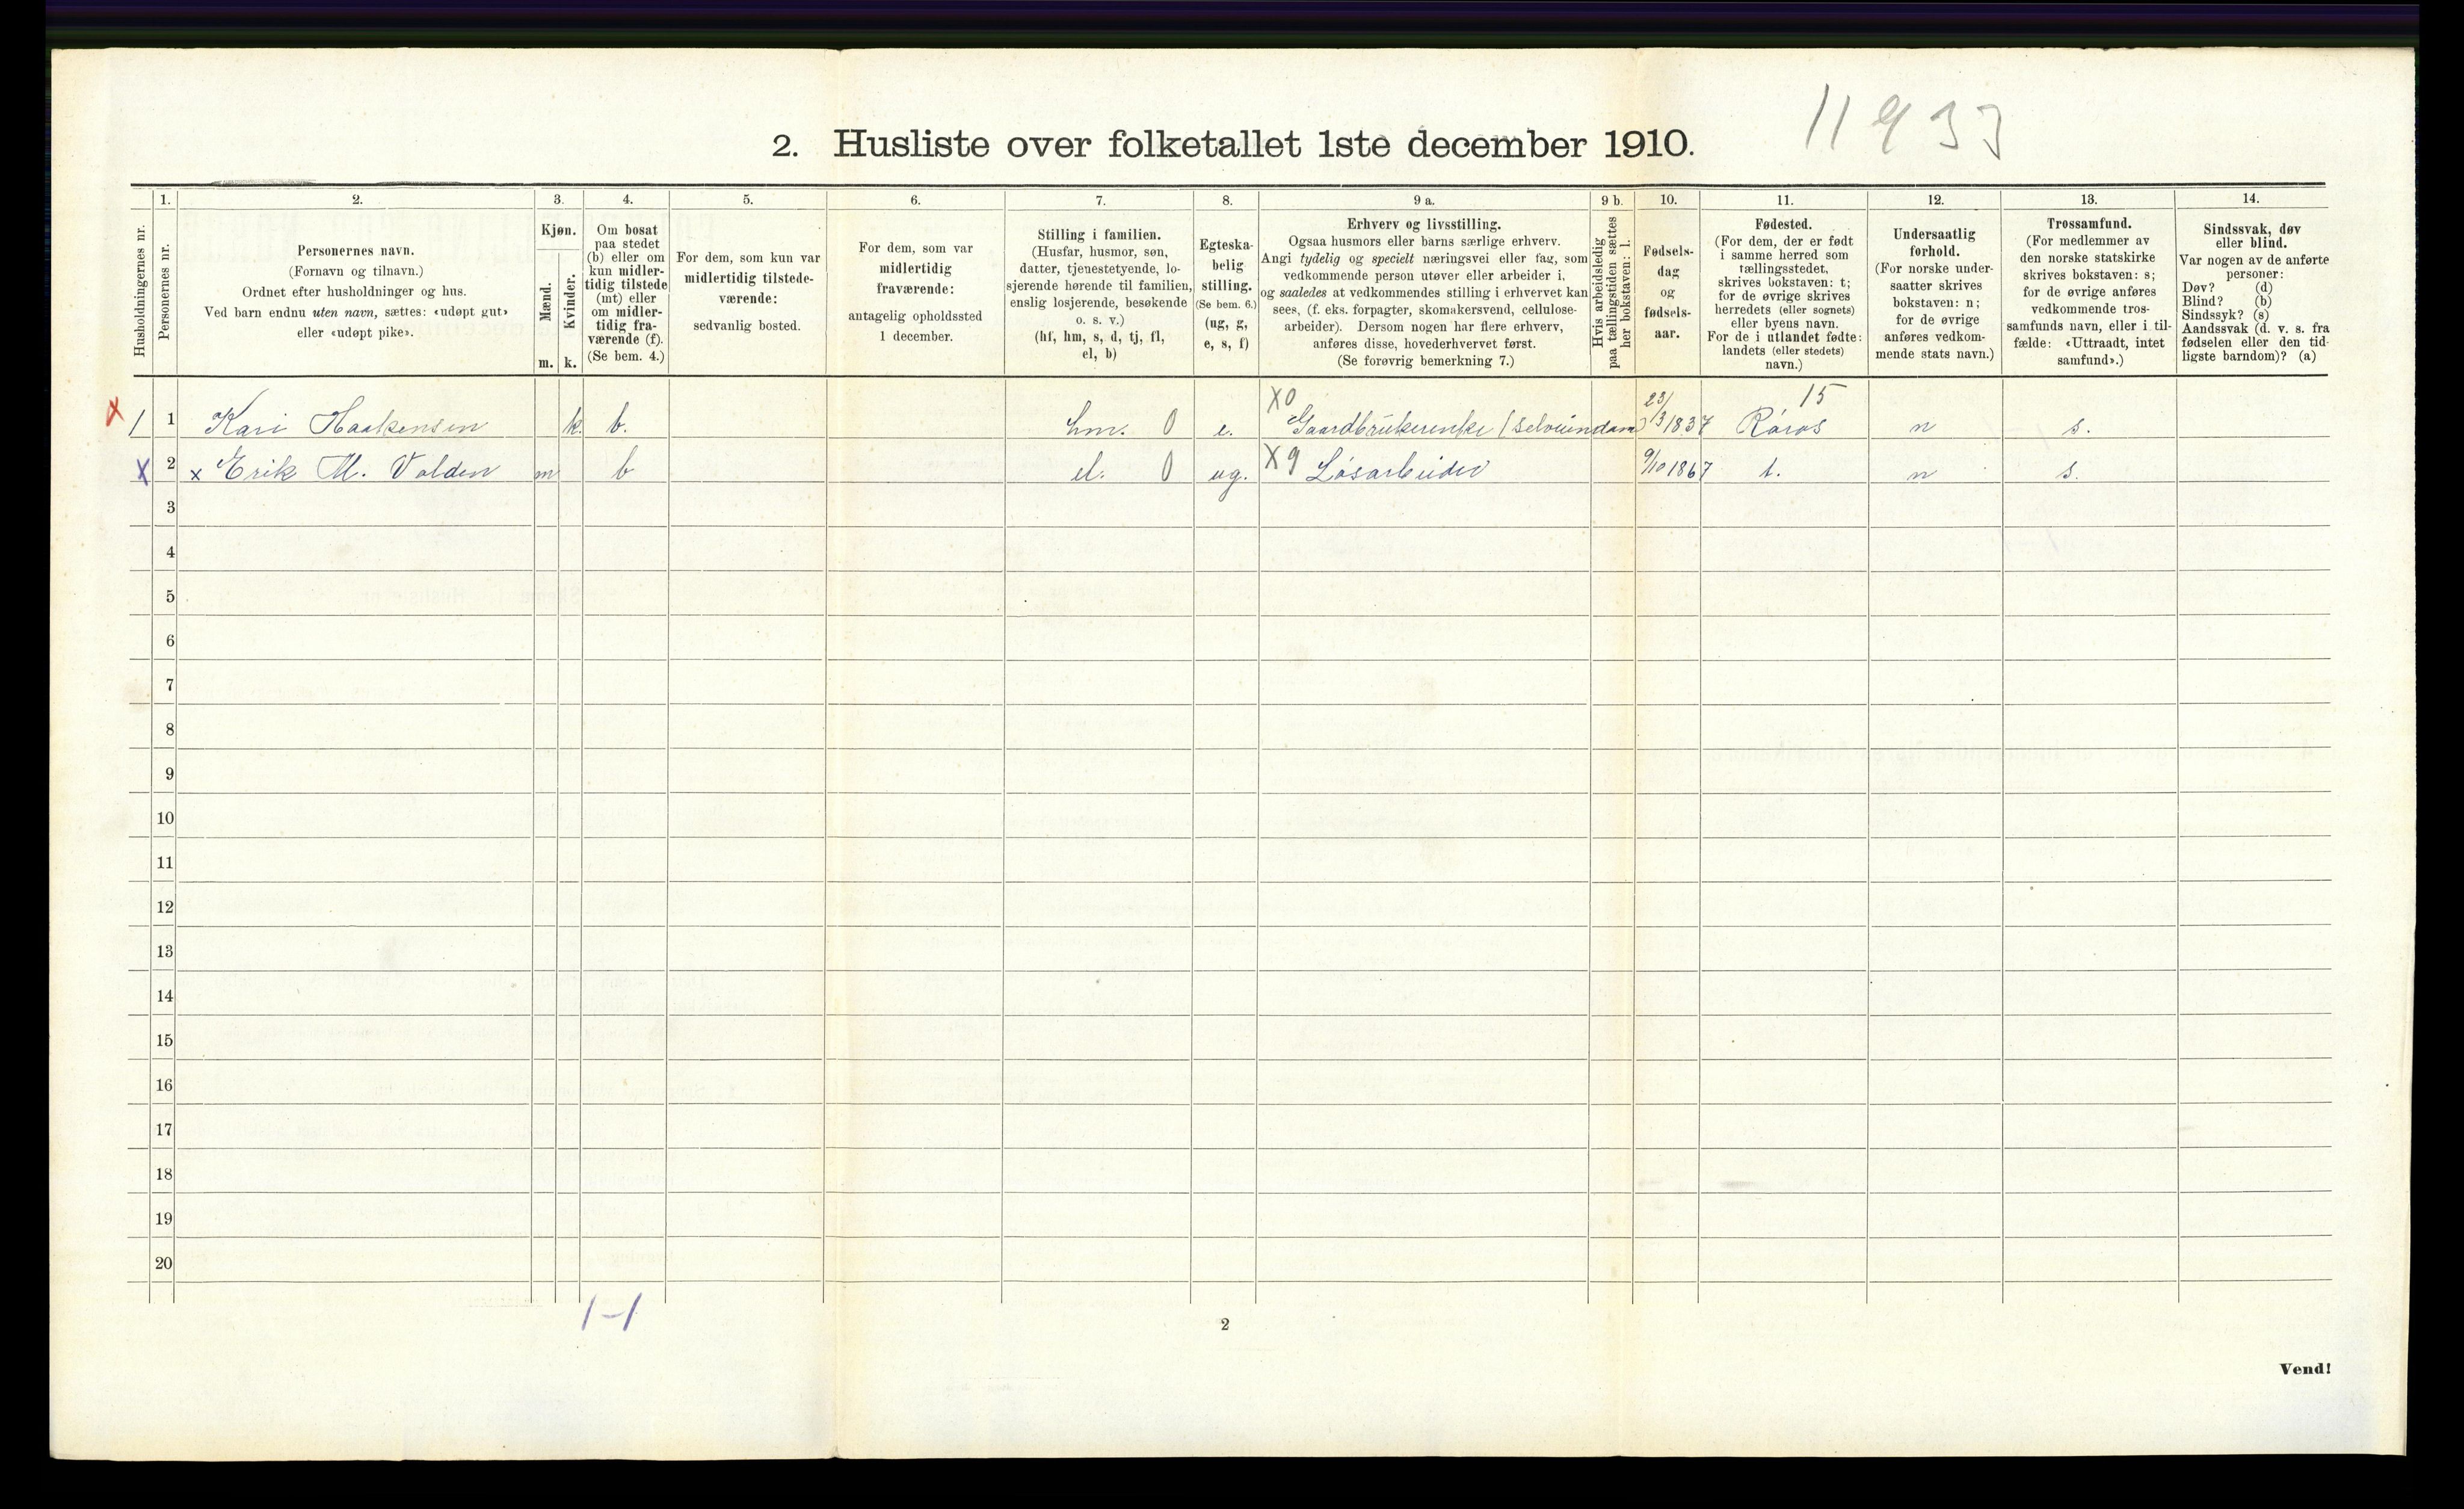 11933
2. Husliste over folketallet 1ste december 1910.
Husholdningernes nr.
1.
Personernes nr.
2.
Personernes navn.
(Fornavn og tilnavn.)
Ordnet efter husholdninger og hus.
Ved barn endnu uten navn, sættes: «udøpt gut»
eller «udøpt pike».
3.
Kjøn.
Mænd.
m.
Kvinder.
k.
4.
Om bosat
paa stedet
(b) eller om
kun midler-
tidig tilstede
(mt) eller
om midler-
tidig fra-
værende (f).
(Se bem. 4.)
5.
For dem, som kun var
midlertidig tilstede-
værende:
sedvanlig bosted.
6.
For dem, som var
midlertidig
fraværende:
antagelig opholdssted
1 december.
7.
Stilling i familien.
(Husfar, husmor, søn,
datter, tjenestetyende, lo-
sjerende hørende til familien,
enslig losjerende, besøkende
o. s. v.)
(hf, hm, s, d, tj, fl,
el, b)
8.
Egteska-
belig
stilling.
(Se bem. 6.)
(ug, g,
e, s, f)
9 a.
Erhverv og livsstilling.
Ogsaa husmors eller barns særlige erhverv.
Angi tydelig og specielt næringsvei eller fag, som
vedkommende person utøver eller arbeider i,
og saaledes at vedkommendes stilling i erhvervet kan
sees, (f. eks. forpagter, skomakersvend, cellulose-
arbeider). Dersom nogen har flere erhverv,
anføres disse, hovederhvervet først.
(Se forøvrig bemerkning 7.)
9 b.
Hvis arbeidsledig
paa tællingstiden sættes
her bokstaven: l.
10.
Fødsels-
dag
og
fødsels-
aar.
11.
Fødested.
(For dem, der er født
i samme herred som
tællingsstedet,
skrives bokstaven: t;
for de øvrige skrives
herredets (eller sognets)
eller byens navn.
For de i utlandet fødte:
landets (eller stedets)
navn.)
12.
Undersaatlig
forhold.
(For norske under-
saatter skrives
bokstaven: n;
for de øvrige
anføres vedkom-
mende stats navn.)
13.
Trossamfund.
(For medlemmer av
den norske statskirke
skrives bokstaven: s;
for de øvrige anføres
vedkommende tros-
samfunds navn, eller i til-
fælde: «Uttraadt, intet
samfund».)
14.
Sindssvak, døv
eller blind.
Var nogen av de anførte
personer:
Døv? (d)
Blind? (b)
Sindssyk? (s)
Aandssvak (d. v. s. fra
fødselen eller den tid-
ligste barndom)? (a)
X0 15
x 1 1 Kari Haakensen k. b. hm. 0 e. Gaardbrukerenke (selveiendom) 23/3 1837 Røros n s.
x 2 x Erik M. Volden m b el. 0 ug. X9 Løsarbeider 9/10 1867 t. n s.
3
4
5
6
7
8
9
10
11
12
13
14
15
16
17
18
19
20
1-1
2
Vend!